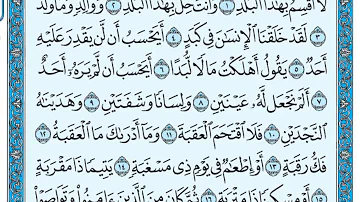 لَآ أُقْسِمُ بِهَٰذَا ٱلْبَلَدِ ١ وَأَنتَ حِلٌّۢ بِهَٰذَا ٱلْبَلَدِ ٢ وَوَالِدٍ وَمَا وَلَدَ
٣ لَقَدْ خَلَقْنَا ٱلْإِنسَٰنَ فِى كَبَدٍ ٤ أَيَحْسَبُ أَن لَّن يَقْدِرَ عَلَيْهِ
أَحَدٌ ٥ يَقُولُ أَهْلَكْتُ مَالًا لُّبَدًا ٦ أَيَحْسَبُ أَن لَّمْ يَرَهُۥٓ أَحَدٌ
٧ أَلَمْ نَجْعَل لَّهُۥ عَيْنَيْنِ ٨ وَلِسَانًا وَشَفَتَيْنِ ٩ وَهَدَيْنَٰهُ
ٱلنَّجْدَيْنِ ١٠ فَلَا ٱقْتَحَمَ ٱلْعَقَبَةَ ١١ وَمَآ أَدْرَىٰكَ مَا ٱلْعَقَبَةُ ١٢
فَكُّ رَقَبَةٍ ١٣ أَوْ إِطْعَٰمٌ فِى يَوْمٍ ذِى مَسْغَبَةٍ ١٤ يَتِيمًا ذَا مَقْرَبَةٍ
١٥ أَوْ مِسْكِينًا ذَا مَتْرَبَةٍ ١٦ ثُمَّ كَانَ مِنَ ٱلَّذِينَ ءَامَنُوا۟ وَتَوَاصَوْا۟